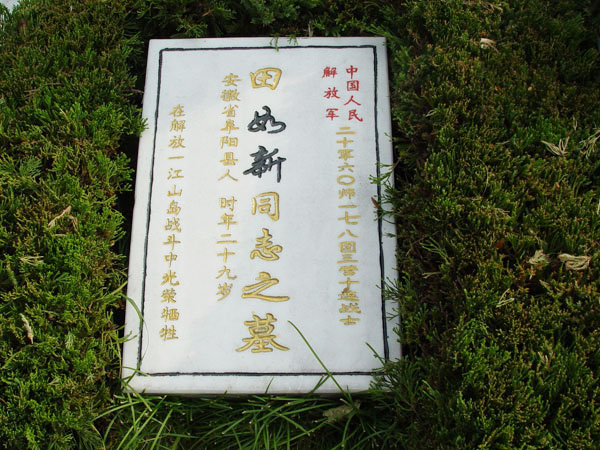 中国人民
解放军
二十军六〇师一七八团三营十连战士
田如新同志之墓
安徽省阜阳县人 时年二十九岁
在解放一江山岛战斗中光荣牺牲